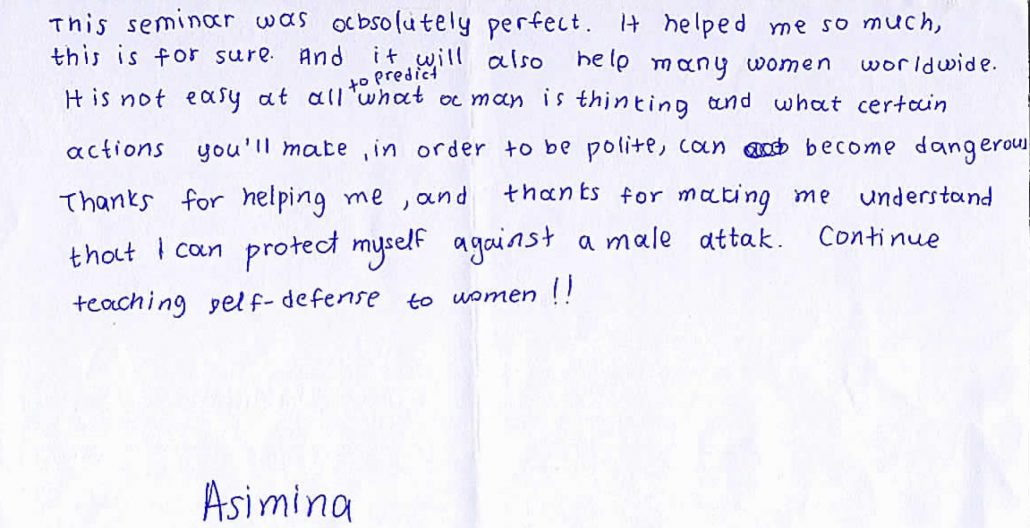 This seminar was absolutely perfect. It helped me so much,
this is for sure. And it will also help many women worldwide.
It is not easy at all to predict what a man is thinking and what certain
actions you'll make, in order to be polite, can become dangerous
Thanks for helping me, and thanks for making me understand
that I can protect myself against a male attak. Continue
teaching self-defense to women!!
Asimina